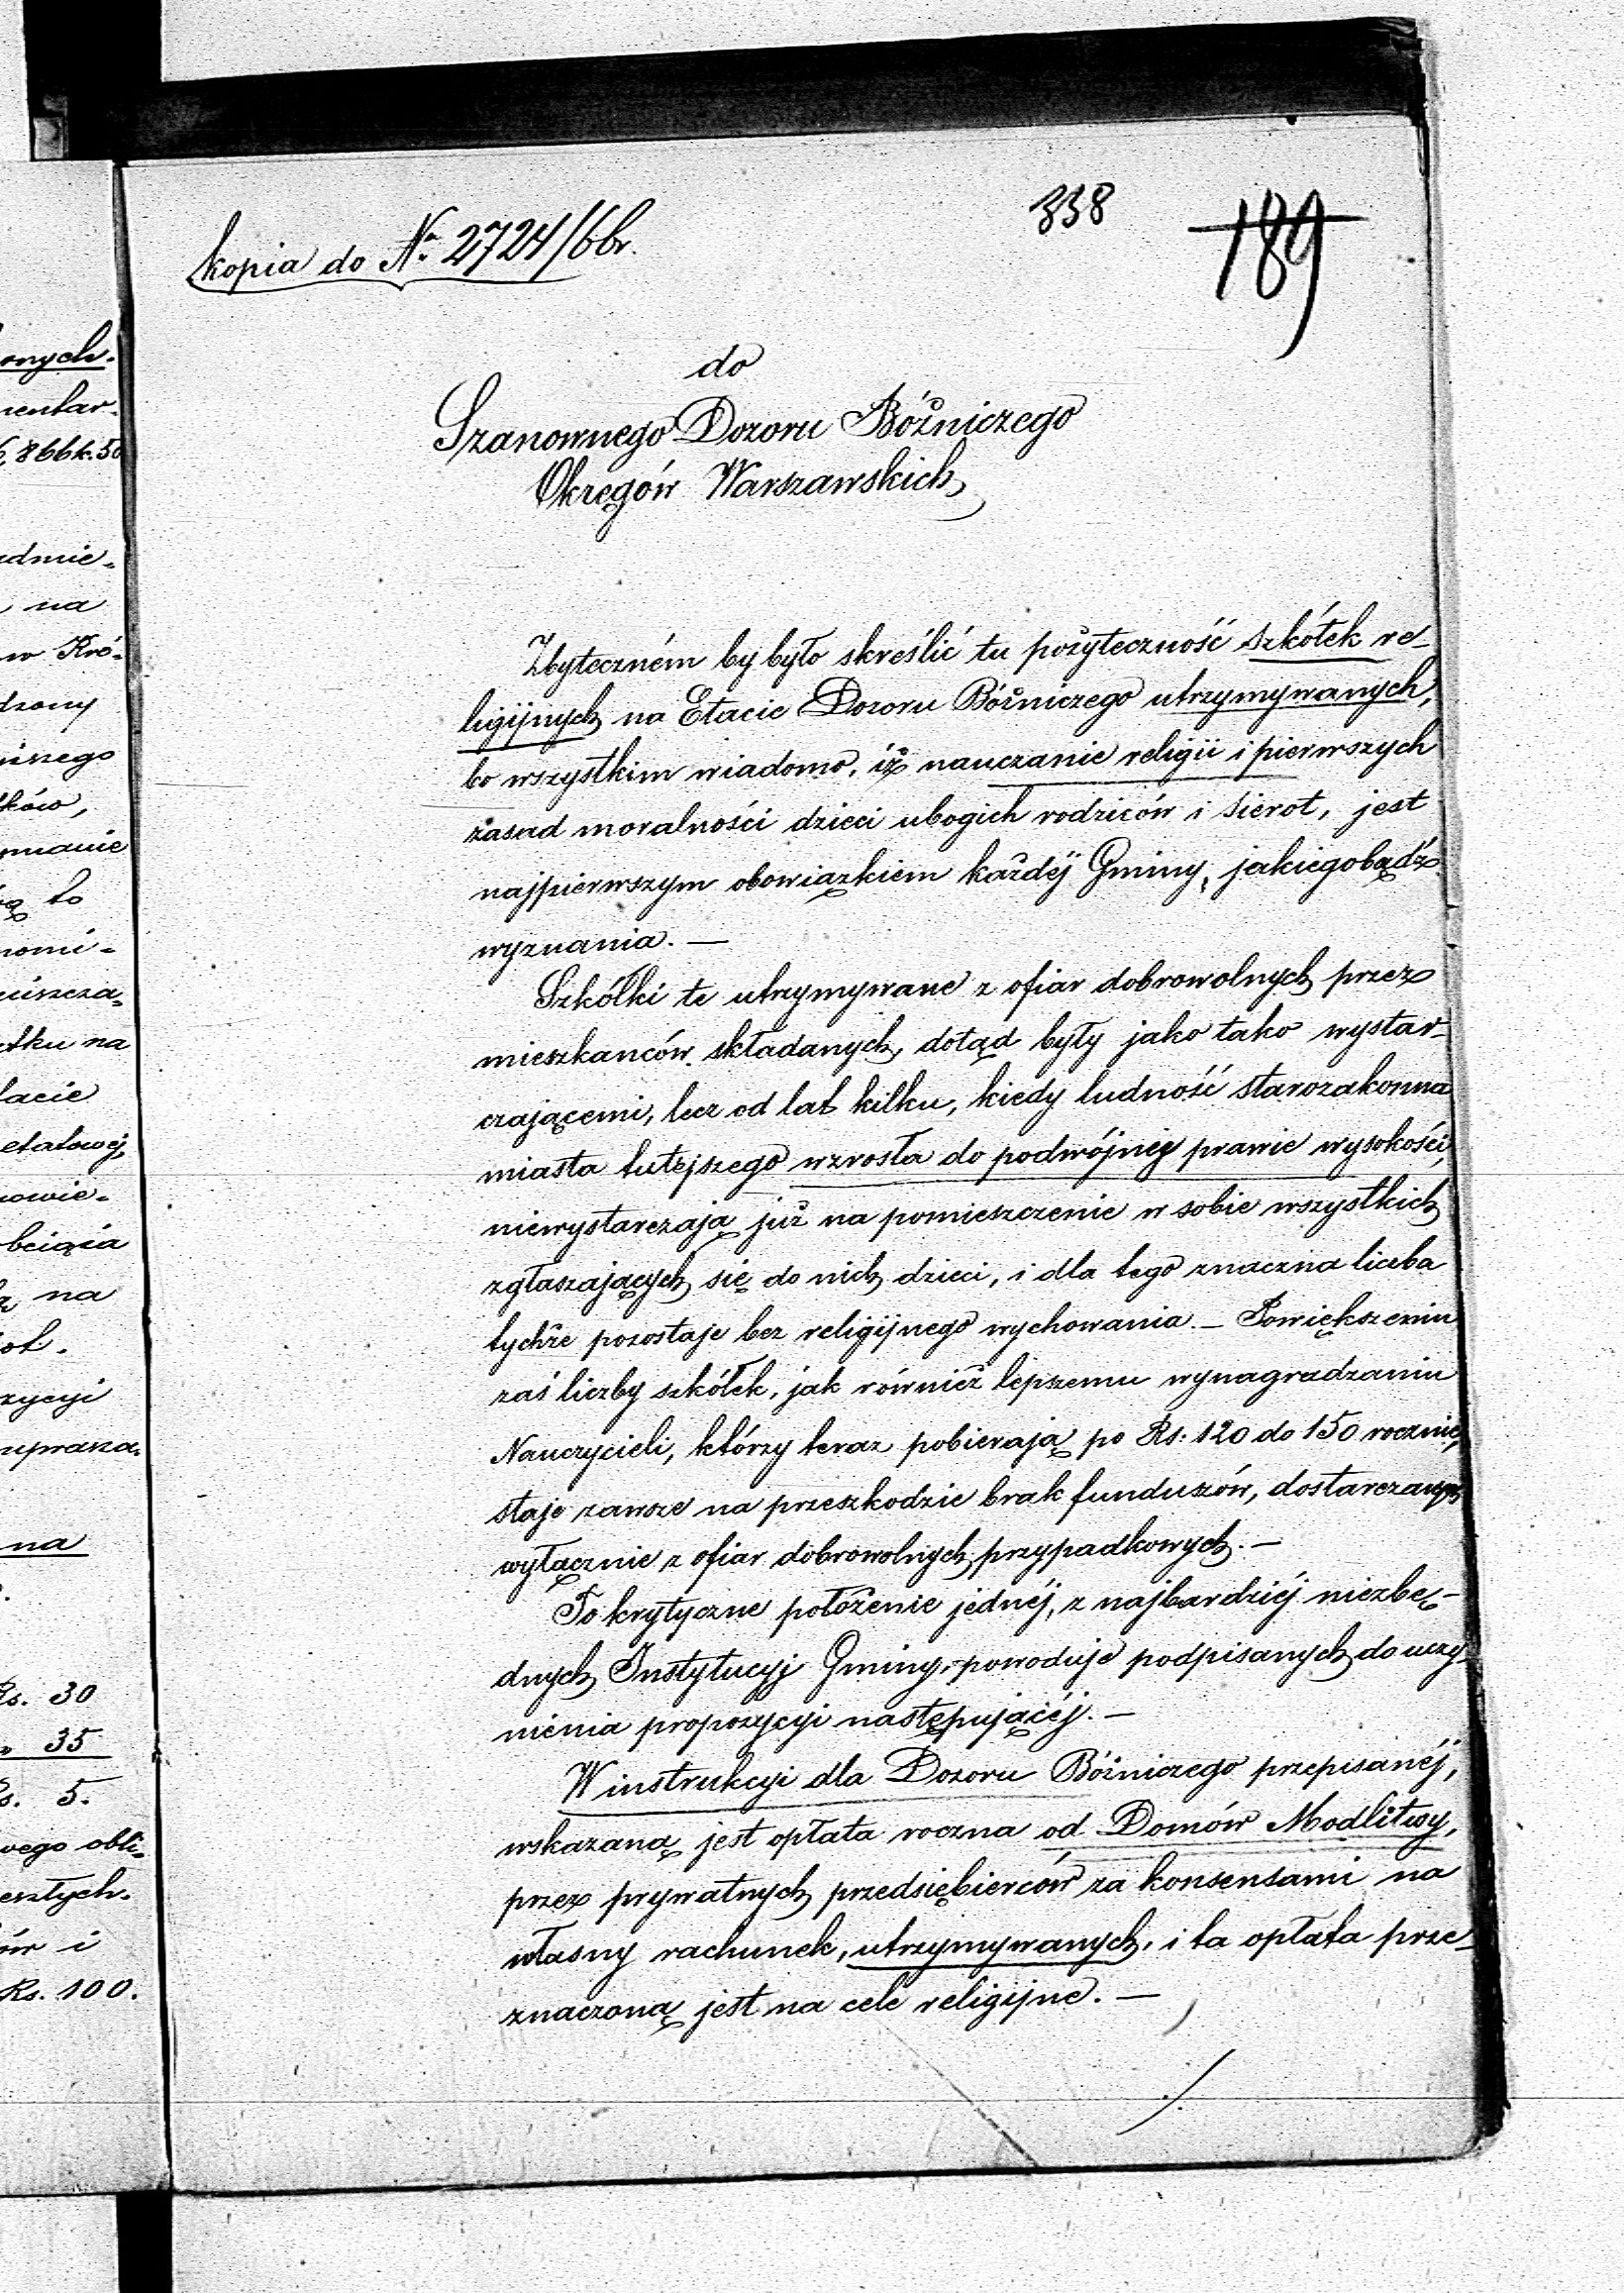 338
189
kopia do № 2724/66r.
do
Szanownego Dozoru Bóżniczego
Okręgów Warszawskich
Zbyteczném by było skreślić tu pożyteczność szkółek re-
ligijnych na Etacie Dozoru Bóżniczego utrzymywanych,
bo wszystkim wiadomo, iż nauczanie religii i pierwszych
zasad moralności dzieci ubogich rodziców i sierot, jest
najpierwszym obowiązkiem każdéj Gminy, jakiegobądź
wyznania. —
Szkółki te utrzymywane z ofiar dobrowolnych przez
mieszkanców składanych, dotąd były jako tako wystar-
czającemi, lecz od lat kilku, kiedy ludność starozakonna
miasta tutejszego wzrosła do podwójnéj prawie wysokości,
niewystarczają już na pomieszczenie w sobie wszystkich
zgłaszających się do nich dzieci, i dla tego znaczna liczba
tychże pozostaje bez religijnego wychowania. — Powiększeniu
zaś liczby szkółek, jak również lepszemu wynagradzaniu
Nauczycieli, którzy teraz pobierają po Rs. 120 do 150 rocznie,
staje zawsze na przeszkodzie brak funduszów, dostarczanych
wyłącznie z ofiar dobrowolnych przypadkowych. —
To krytyczne położenie jednéj, z najbardziéj niezbę-
dnych Instytucyj Gminy, powoduje podpisanych do uczy-
nienia propozycyi następującéj. —
W instrukcyi dla Dozoru Bóżniczego przepisanéj,
wskazaną jest opłata roczna od Domów Modlitwy,
przez prywatnych przedsiębierców za konsensami na
własny rachunek, utrzymywanych, i ta opłata prze-
znaczoną jest na cele religijne. —
./.
onych.
mentar.
866 k. 50
na
w Kró-
dzony
ków,
to
nomi-
tku na
etatowej,
na
zycyi
na
Rs. 30
35
Rs. 5.
wego obli-
eszłych.
ów i
Rs. 100.